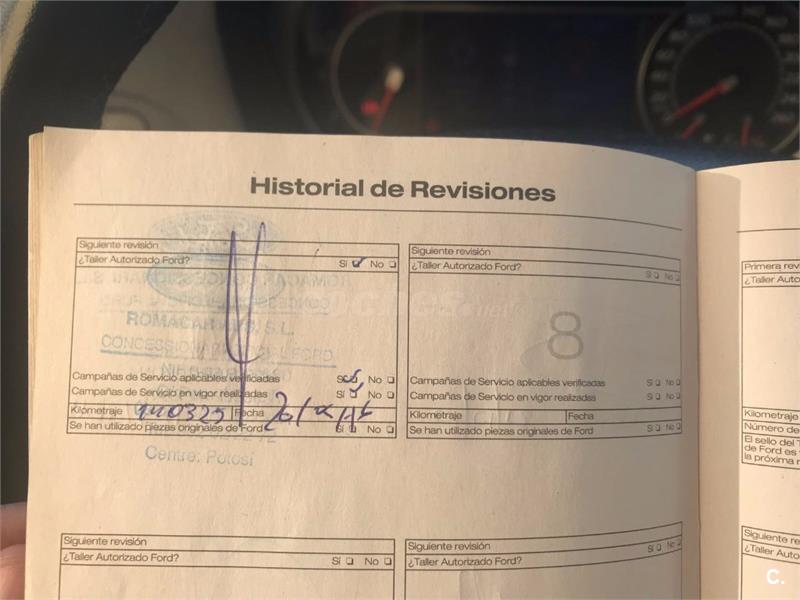 Historial de Revisiones
Siguiente revisión
¿Taller Autorizado Ford? Sí No
ROMACAR S.L.
CONCESSIONARI FORD
Campañas de Servicio aplicables verificadas Sí No
Campañas de Servicio en vigor realizadas Sí No
Kilómetraje 140325 Fecha
Se han utilizado piezas originales de Ford Sí No
Centre: Potosí
Siguiente revisión
¿Taller Autorizado Ford? Sí No
8
Campañas de Servicio aplicables verificadas Sí No
Campañas de Servicio en vigor realizadas Sí No
Kilómetraje Fecha
Se han utilizado piezas originales de Ford Sí No
Siguiente revisión
¿Taller Autorizado Ford? Sí No
Siguiente revisión
¿Taller Autorizado Ford? Sí No
Primera rev
¿Taller Auto
Kilómetraje
Número de
El sello del T
de Ford es
la próxima r
Siguiente re
¿Taller Auto
C.